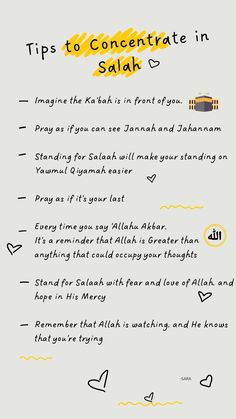 Tips to Concentrate in
Salah
— Imagine the Ka'bah is in front of you.
— Pray as if you can see Jannah and Jahannam
— Standing for Salaah will make your standing on
Yawmul Qiyamah easier
— Pray as if it's your last
— Every time you say 'Allahu Akbar.
It's a reminder that Allah is Greater than
anything that could occupy your thoughts
الله
— Stand for Salaah with fear and love of Allah. and
hope in His Mercy
— Remember that Allah is watching. and He knows
that you're trying
-SARA